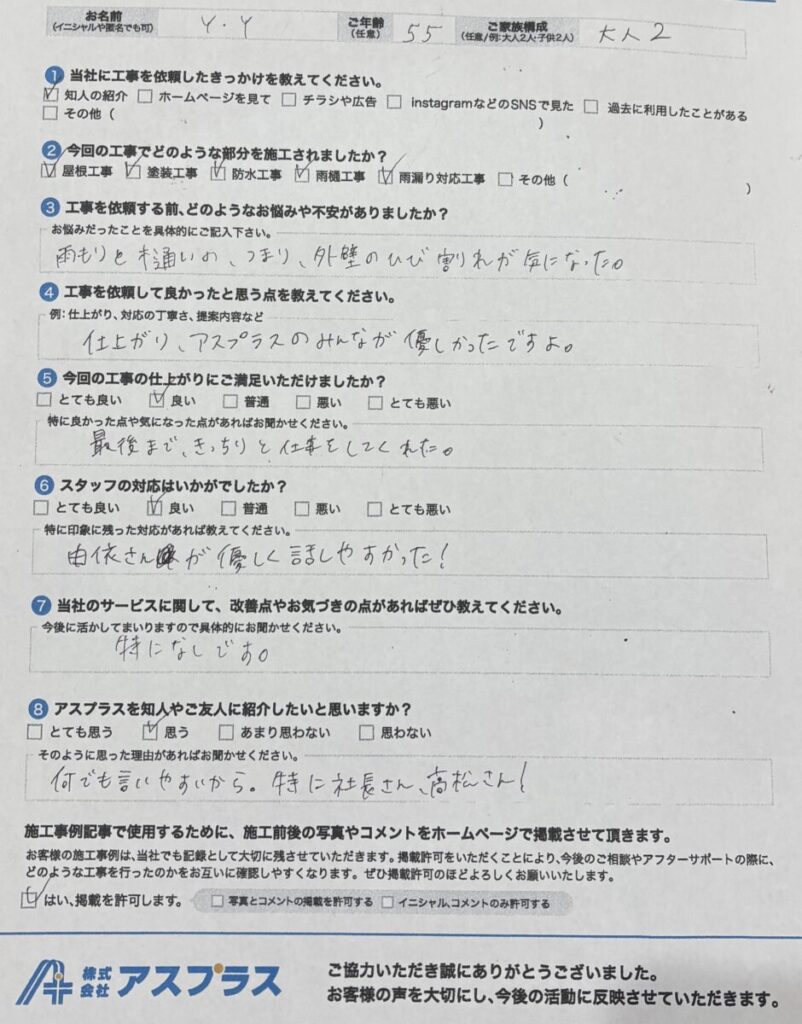 お名前 (イニシャルや匿名でも可) Y.Y ご年齢 (任意) 55 ご家族構成 (任意/例:大人2人・子供2人) 大人2
1 当社に工事を依頼したきっかけを教えてください。
☑ 知人の紹介 □ ホームページを見て □ チラシや広告 □ instagramなどのSNSで見た □ 過去に利用したことがある
□ その他 ( )
2 今回の工事でどのような部分を施工されましたか?
☑ 屋根工事 ☑ 塗装工事 ☑ 防水工事 ☑ 雨樋工事 ☑ 雨漏り対応工事 □ その他 ( )
3 工事を依頼する前、どのようなお悩みや不安がありましたか?
お悩みだったことを具体的にご記入下さい。
雨もりと樋いの、つまり、外壁のひび割れが気になった。
4 工事を依頼して良かったと思う点を教えてください。
例:仕上がり、対応の丁寧さ、提案内容など
仕上がり、アスプラスのみんなが優しかったですよ。
5 今回の工事の仕上がりにご満足いただけましたか?
□ とても良い ☑ 良い □ 普通 □ 悪い □ とても悪い
特に良かった点や気になった点があればお聞かせください。
最後まで、きっちりと仕事をしてくれた。
6 スタッフの対応はいかがでしたか?
□ とても良い ☑ 良い □ 普通 □ 悪い □ とても悪い
特に印象に残った対応があれば教えてください。
由依さんが優しく話しやすかった!
7 当社のサービスに関して、改善点やお気づきの点があればぜひ教えてください。
今後に活かしてまいりますので具体的にお聞かせください。
特になしです。
8 アスプラスを知人やご友人に紹介したいと思いますか?
□ とても思う ☑ 思う □ あまり思わない □ 思わない
そのように思った理由があればお聞かせください。
何でも言いやすいから。特に社長さん、高松さん!
施工事例記事で使用するために、施工前後の写真やコメントをホームページで掲載させて頂きます。
お客様の施工事例は、当社でも記録として大切に残させていただきます。掲載許可をいただくことにより、今後のご相談やアフターサポートの際に、
どのような工事を行ったのかをお互いに確認しやすくなります。ぜひ掲載許可のほどよろしくお願いいたします。
☑ はい、掲載を許可します。 □ 写真とコメントの掲載を許可する □ イニシャル、コメントのみ許可する
株式会社 アスプラス
ご協力いただき誠にありがとうございました。
お客様の声を大切にし、今後の活動に反映させていただきます。